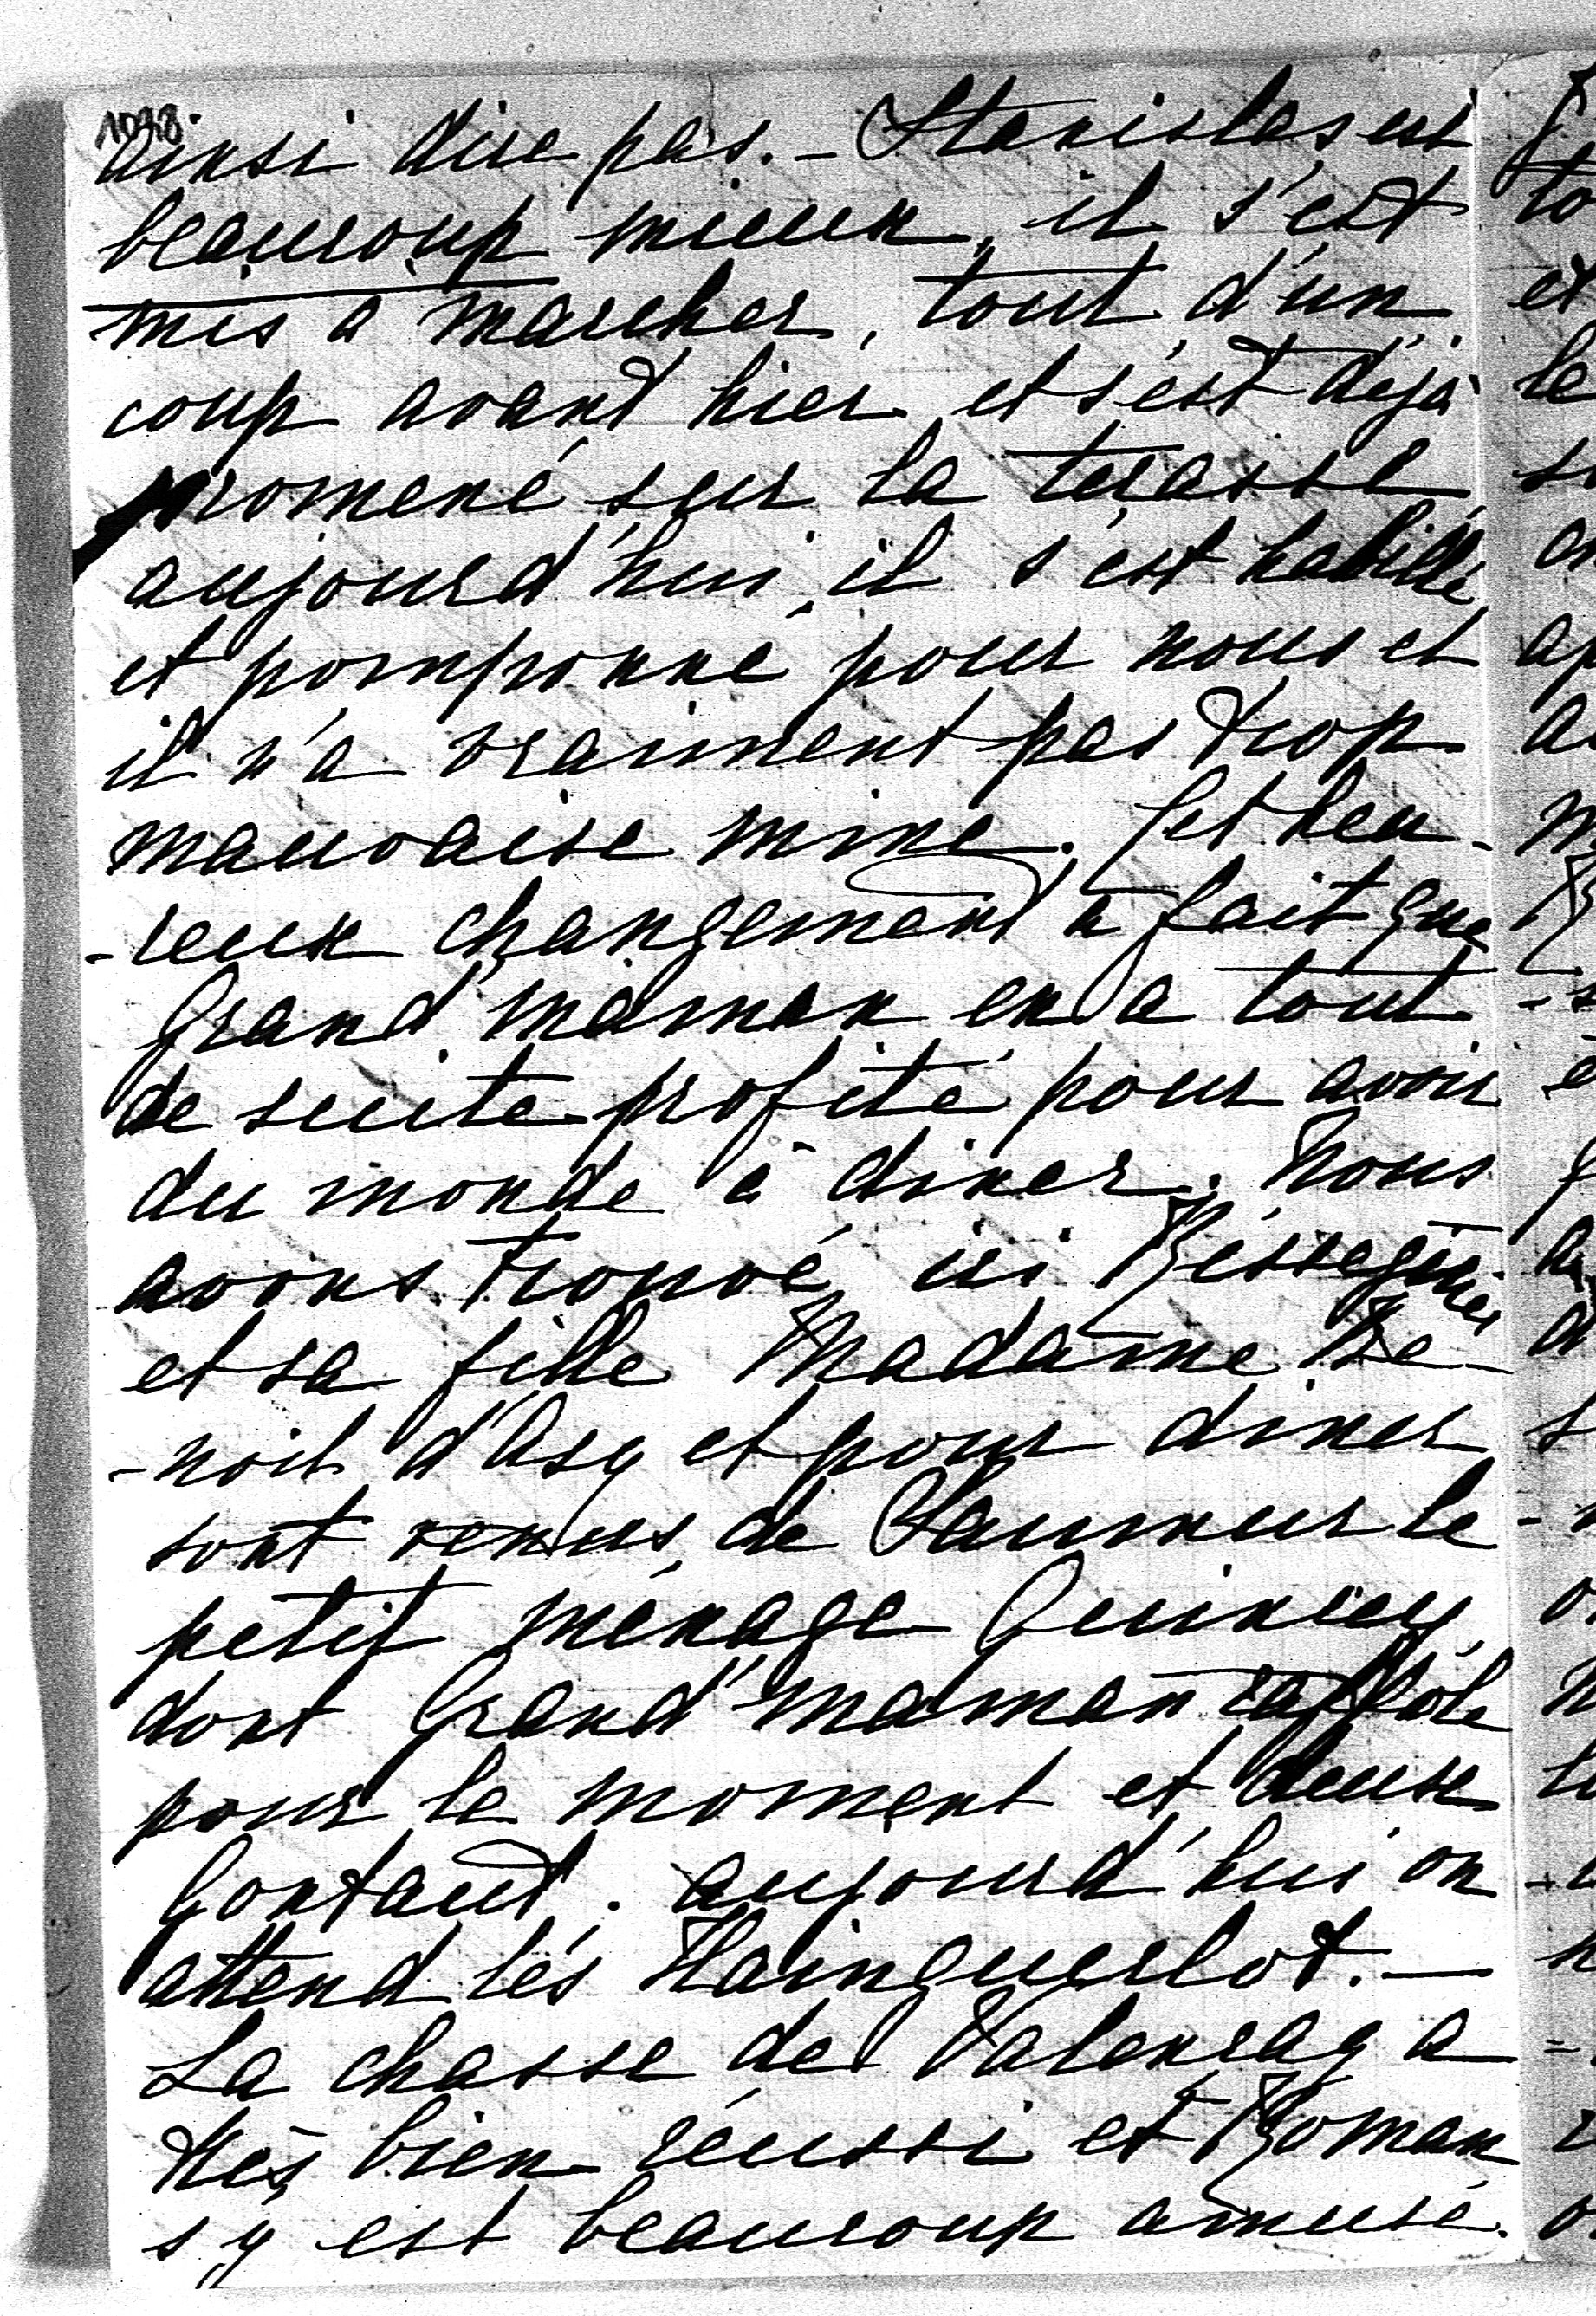 1038
ainsi dire pas. - Stanislas est
beaucoup mieux, il s'est
mis à marcher, tout d'un
coup avant hier et s'est déjà
promené sur la terasse,
aujourd'hui, il s'est habillé
et pomponné pour nous et
il n'a vraiment pas trop
mauvaise mine. Cet heu-
-reux changement a fait que
Grand'maman en a tout
de suite profité pour avoir
du monde à diner. Nous
avons trouvé ici Rességuier
et sa fille Madame Be-
-noit d'Asy et pour diner
sont venus de Saumur le
petit ménage Quincey
dont Grand'maman raffole
pour le moment et deux
Gontaut. aujourd'hui on
attend les Hainguerlot. -
La chasse de Valençay a
très bien réussi et Roman
s'y est beaucoup amusé.